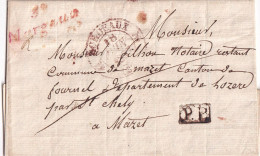 Monsieur,
Monsieur filhon Notaire restant
Commune de mazet Canton de
fournel departement de Lozere
par st Chely
a Mazet
P.P.